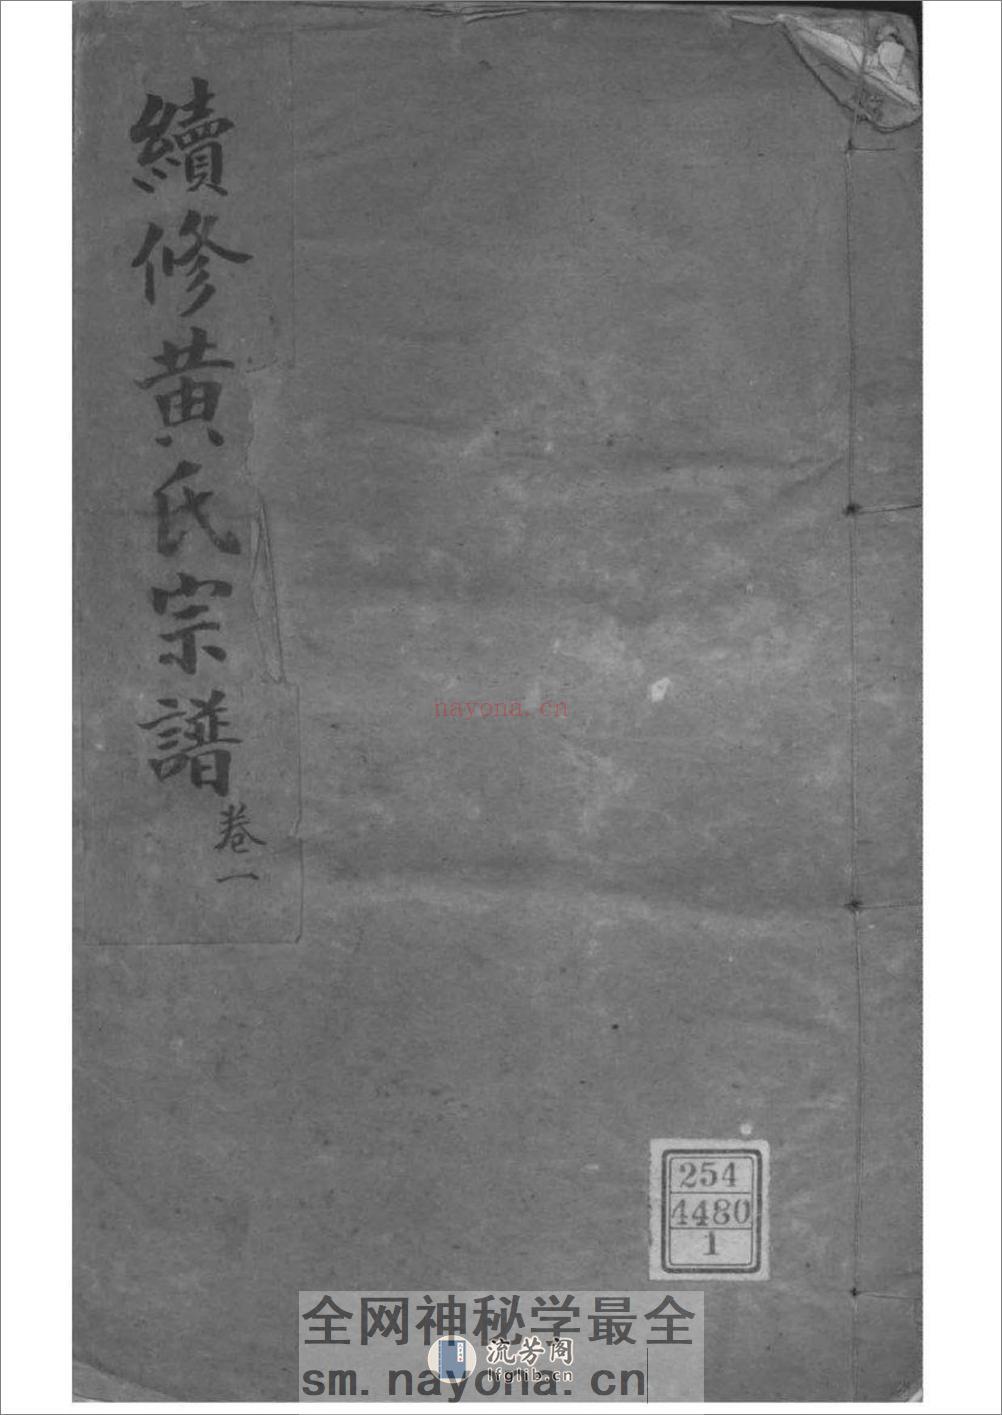 續修黄氏宗譜
卷一
nayona.cn
254
4480
1
全网神秘学最全
流芳阁
lfglib.cn
sm.nayona.cn